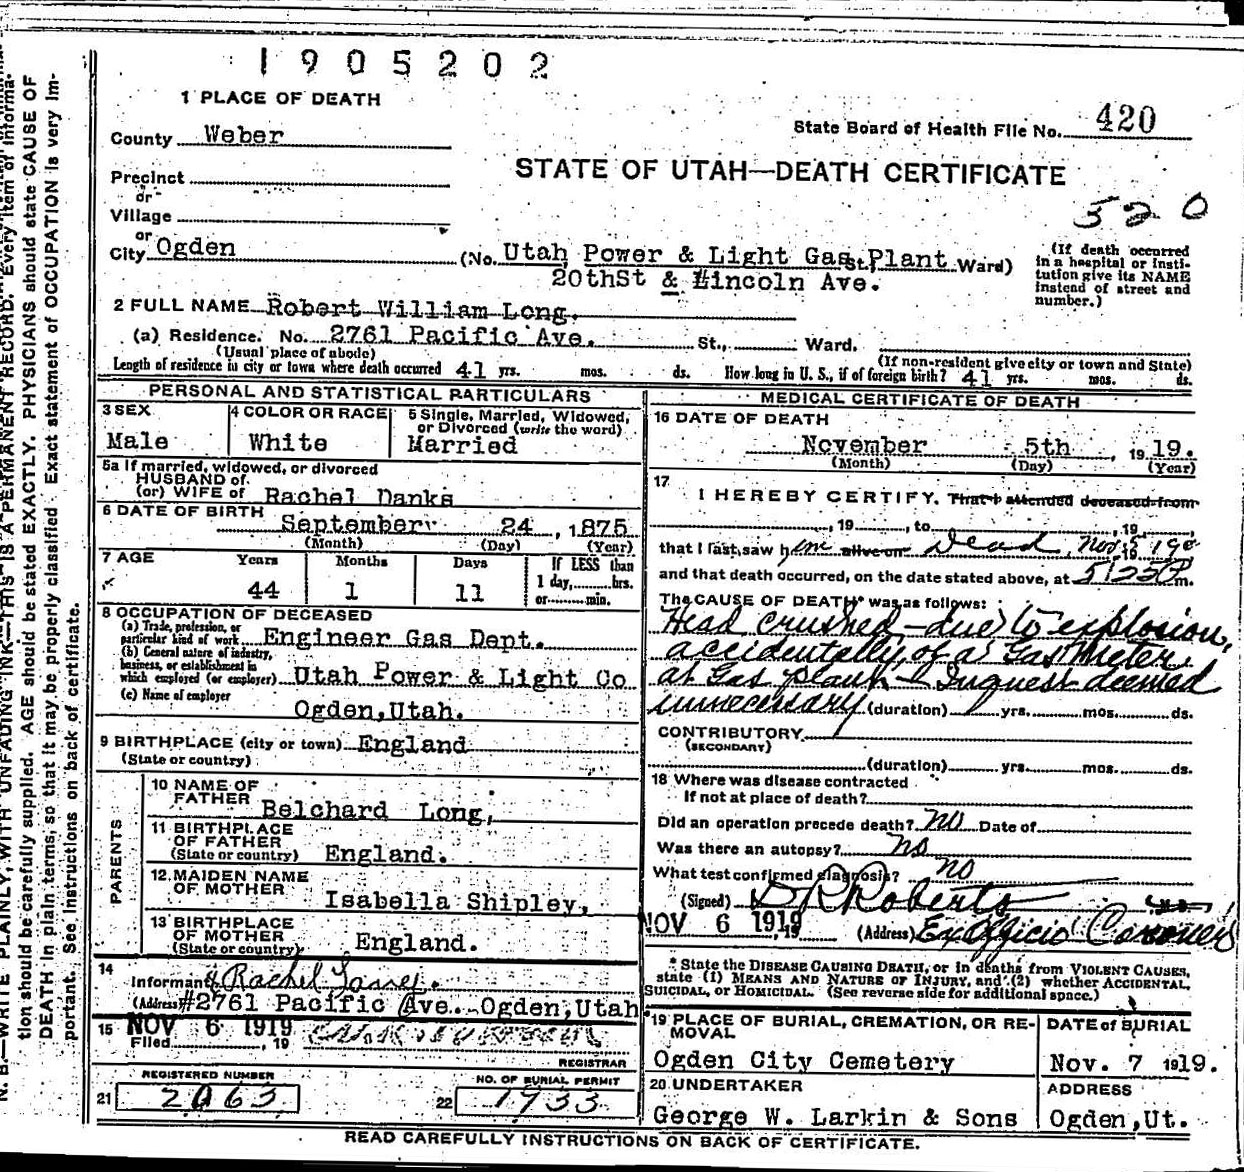 1905202
1 PLACE OF DEATH
State Board of Health File No. 420
County Weber
STATE OF UTAH—DEATH CERTIFICATE
Precinct
or
520
Village
or
City Ogden (No. Utah Power & Light Gas Plant St., Ward)
20thSt & Lincoln Ave.
(If death occurred in a hospital or institution give its NAME instead of street and number.)
2 FULL NAME Robert William Long.
(a) Residence. No. 2761 Pacific Ave. St., Ward.
(Usual place of abode) (If non-resident give city or town and State)
Length of residence in city or town where death occurred 41 yrs. mos. ds. How long in U. S., if of foreign birth? 41 yrs. mos. ds.
PERSONAL AND STATISTICAL PARTICULARS
3 SEX
Male
4 COLOR OR RACE
White
5 Single, Married, Widowed,
or Divorced (write the word)
Married
5a If married, widowed, or divorced
HUSBAND of
(or) WIFE of Rachel Danks
6 DATE OF BIRTH
September 24, 1875
(Month) (Day) (Year)
7 AGE Years Months Days If LESS than
1 day, hrs.
44 1 11 or min.
8 OCCUPATION OF DECEASED
(a) Trade, profession, or
particular kind of work Engineer Gas Dept.
(b) General nature of industry,
business, or establishment in
which employed (or employer) Utah Power & Light Co
(c) Name of employer
Ogden, Utah.
9 BIRTHPLACE (city or town) England
(State or country)
PARENTS
10 NAME OF
FATHER Belchard Long,
11 BIRTHPLACE
OF FATHER
(State or country) England.
12 MAIDEN NAME
OF MOTHER Isabella Shipley,
13 BIRTHPLACE
OF MOTHER
(State or country) England.
14
Informant Rachel
(Address) #2761 Pacific Ave. Ogden, Utah
15 NOV 6 1919
Filed , 19
REGISTRAR
REGISTERED NUMBER
21 2063
NO. OF BURIAL PERMIT
22 1933
MEDICAL CERTIFICATE OF DEATH
16 DATE OF DEATH
November 5th, 19 19.
(Month) (Day) (Year)
17 I HEREBY CERTIFY, That I attended deceased from
, 19 , to , 19
that I last saw him alive on Dead Nov 5 19
and that death occurred, on the date stated above, at m.
The CAUSE OF DEATH* was as follows:
Head crushed—due to explosion,
accidentally, of a Gas Meter
at Gas plant— Inquest deemed
unnecessary (duration) yrs. mos. ds.
CONTRIBUTORY
(SECONDARY)
(duration) yrs. mos. ds.
18 Where was disease contracted
If not at place of death?
Did an operation precede death? no Date of
Was there an autopsy? no
What test confirmed diagnosis? no
(Signed) D R Roberts M.D.
NOV 6 1919, 19 (Address) Ex Officio Coroner
* State the DISEASE CAUSING DEATH, or in deaths from VIOLENT CAUSES,
state (1) MEANS AND NATURE OF INJURY, and (2) whether ACCIDENTAL,
SUICIDAL, or HOMICIDAL. (See reverse side for additional space.)
19 PLACE OF BURIAL, CREMATION, OR RE-
MOVAL
Ogden City Cemetery
DATE of BURIAL
Nov. 7 1919.
20 UNDERTAKER
George W. Larkin & Sons
ADDRESS
Ogden, Ut.
READ CAREFULLY INSTRUCTIONS ON BACK OF CERTIFICATE.
N. B.—WRITE PLAINLY, WITH UNFADING INK—THIS IS A PERMANENT RECORD. Every item of informa-
tion should be carefully supplied. AGE should be stated EXACTLY. PHYSICIANS should state CAUSE OF
DEATH in plain terms, so that it may be properly classified. Exact statement of OCCUPATION is very im-
portant. See instructions on back of certificate.